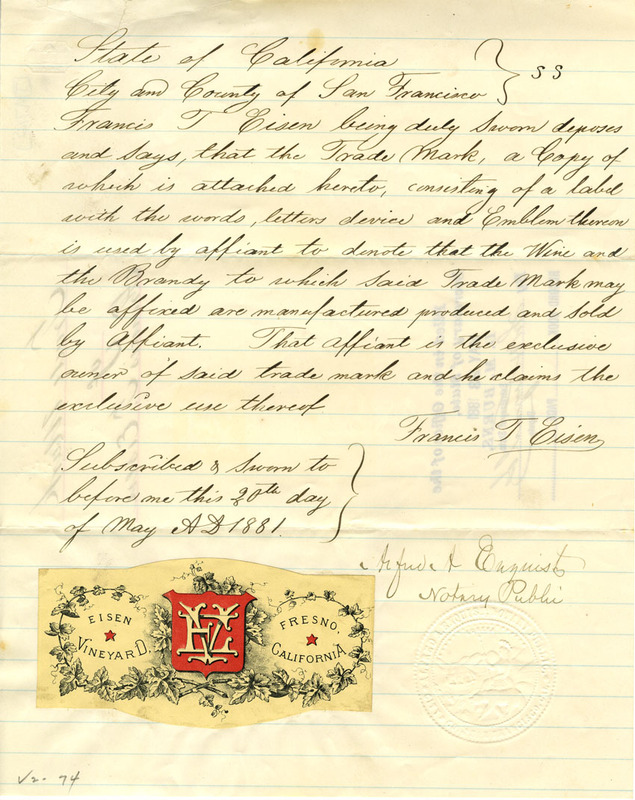 State of California
City and County of San Francisco } SS
Francis T Eisen being duly sworn deposes
and says, that the Trade Mark, a Copy of
which is attached hereto, consisting of a label
with the words, letters device and Emblem thereon
is used by affiant to denote that the Wine and
the Brandy to which said Trade Mark may
be affixed are manufactured produced and sold
by Affiant. That affiant is the exclusive
owner of said trade mark and he claims the
exclusive use thereof
Francis T Eisen
Subscribed & Sworn to
before me this 20th day
of May AD 1881.
Enquist
Notary Public
EISEN
VINEYARD.
FRESNO,
CALIFORNIA
V2- 74